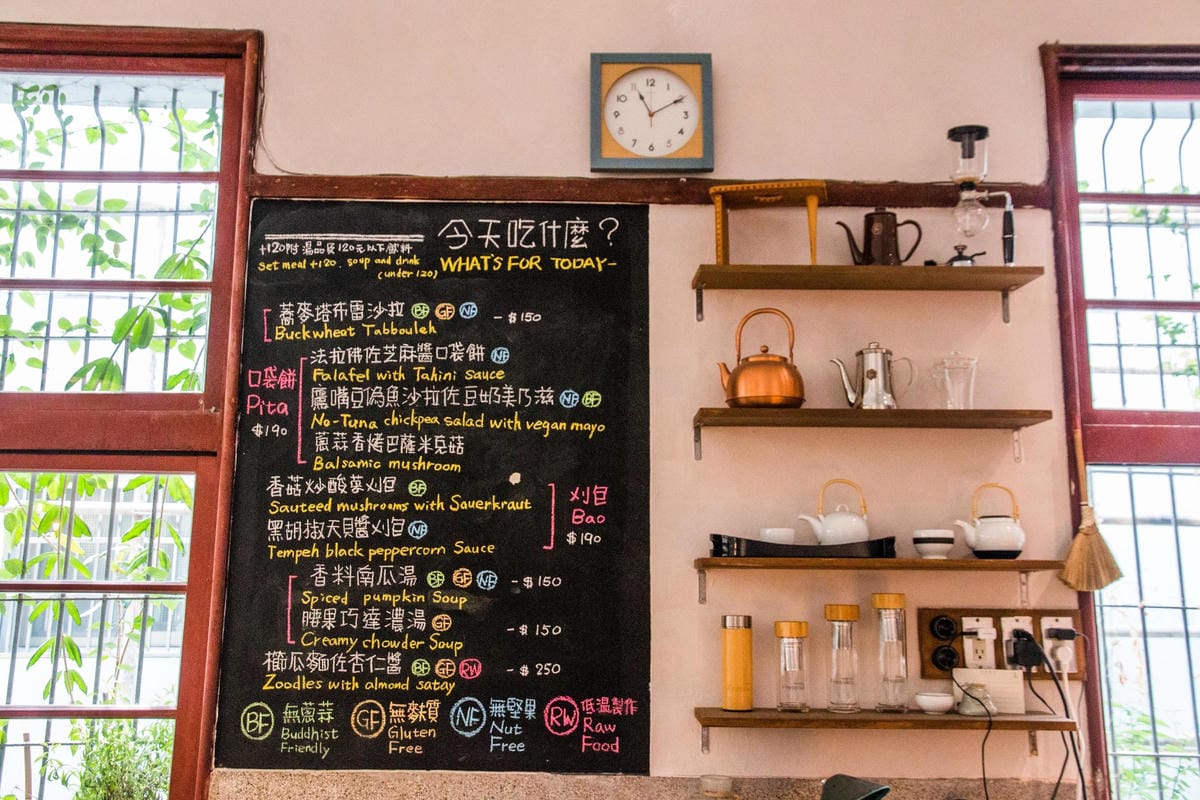 12
11
10
9
8
7
6
5
4
3
今天吃什麼？
WHAT'S FOR TODAY-
+120附湯品及120元以下飲料
Set meal +120. soup and drink
(under 120)
蕎麥塔布雷沙拉 BF GF NF - $150
Buckwheat Tabbouleh
口袋餅
Pita
$190
法拉佛佐芝麻醬口袋餅 NF
Falafel with Tahini sauce
鷹嘴豆偽魚沙拉佐豆奶美乃滋 NF BF
No-Tuna chickpea salad with vegan mayo
蔥蒜香烤巴薩米克菇
Balsamic mushroom
香菇炒酸菜刈包 BF
Sauteed mushrooms with Sauerkraut
黑胡椒天貝醬刈包 NF
Tempeh black peppercorn Sauce
刈包
Bao
$190
香料南瓜湯 BF GF NF - $150
Spiced pumpkin Soup
腰果巧達濃湯 GF - $150
Creamy chowder Soup
櫛瓜麵佐杏仁醬 BF GF RW - $250
Zoodles with almond satay
BF 無蔥蒜
Buddhist
Friendly
GF 無麩質
Gluten
Free
NF 無堅果
Nut
Free
RW 低温製作
Raw
Food